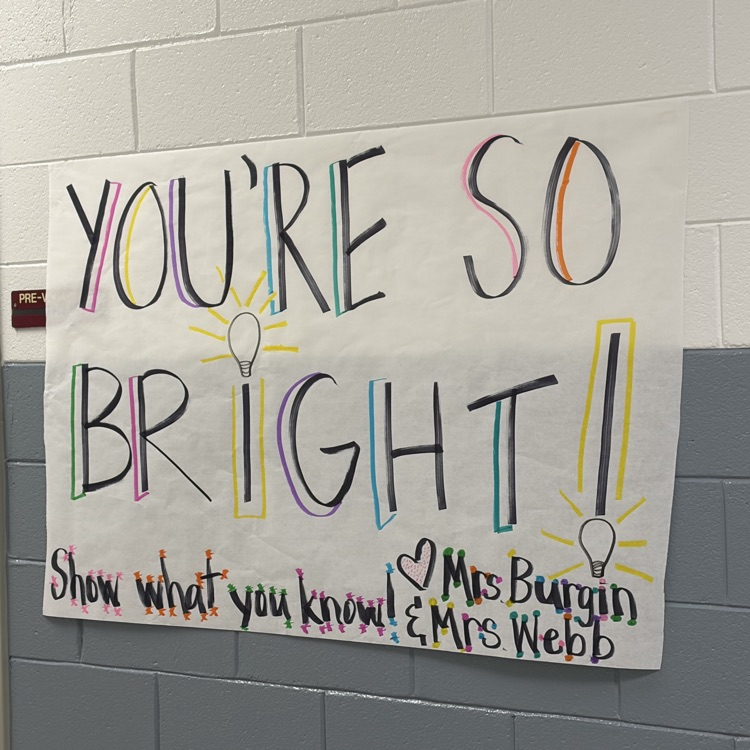 YOU'RE SO
PRE-
BRIGHT!
Show what you know!
♡ Mrs. Burgin
& Mrs. Webb